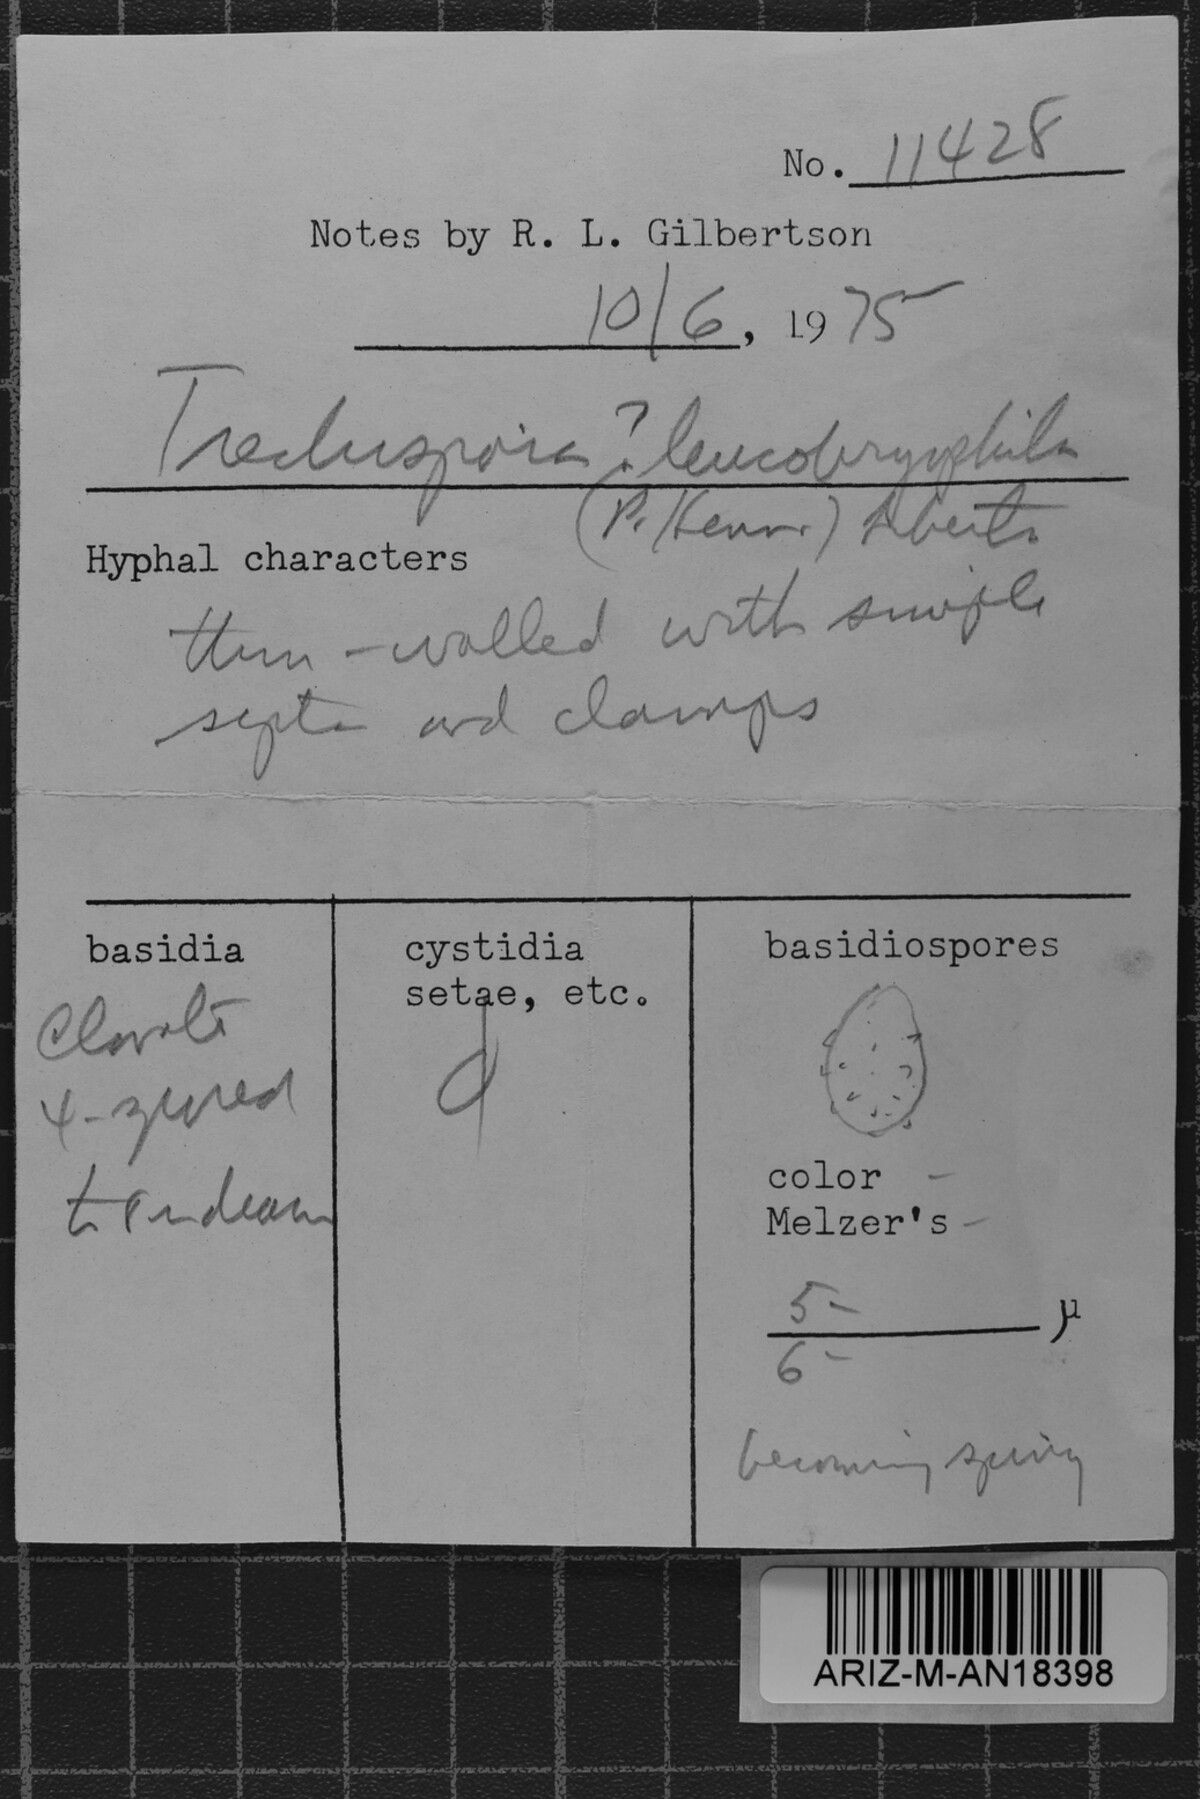 No. 11428
Notes by R. L. Gilbertson
10/6, 1975
Trechispora ? leucobryophila
(P. Henn.) Liberta
Hyphal characters
thin-walled with simple
septa and clamps
basidia
Clavate
4-spored
cystidia
setae, etc.
basidiospores
color -
Melzer's -
5-
μ
6-
becoming spiny
ARIZ-M-AN18398